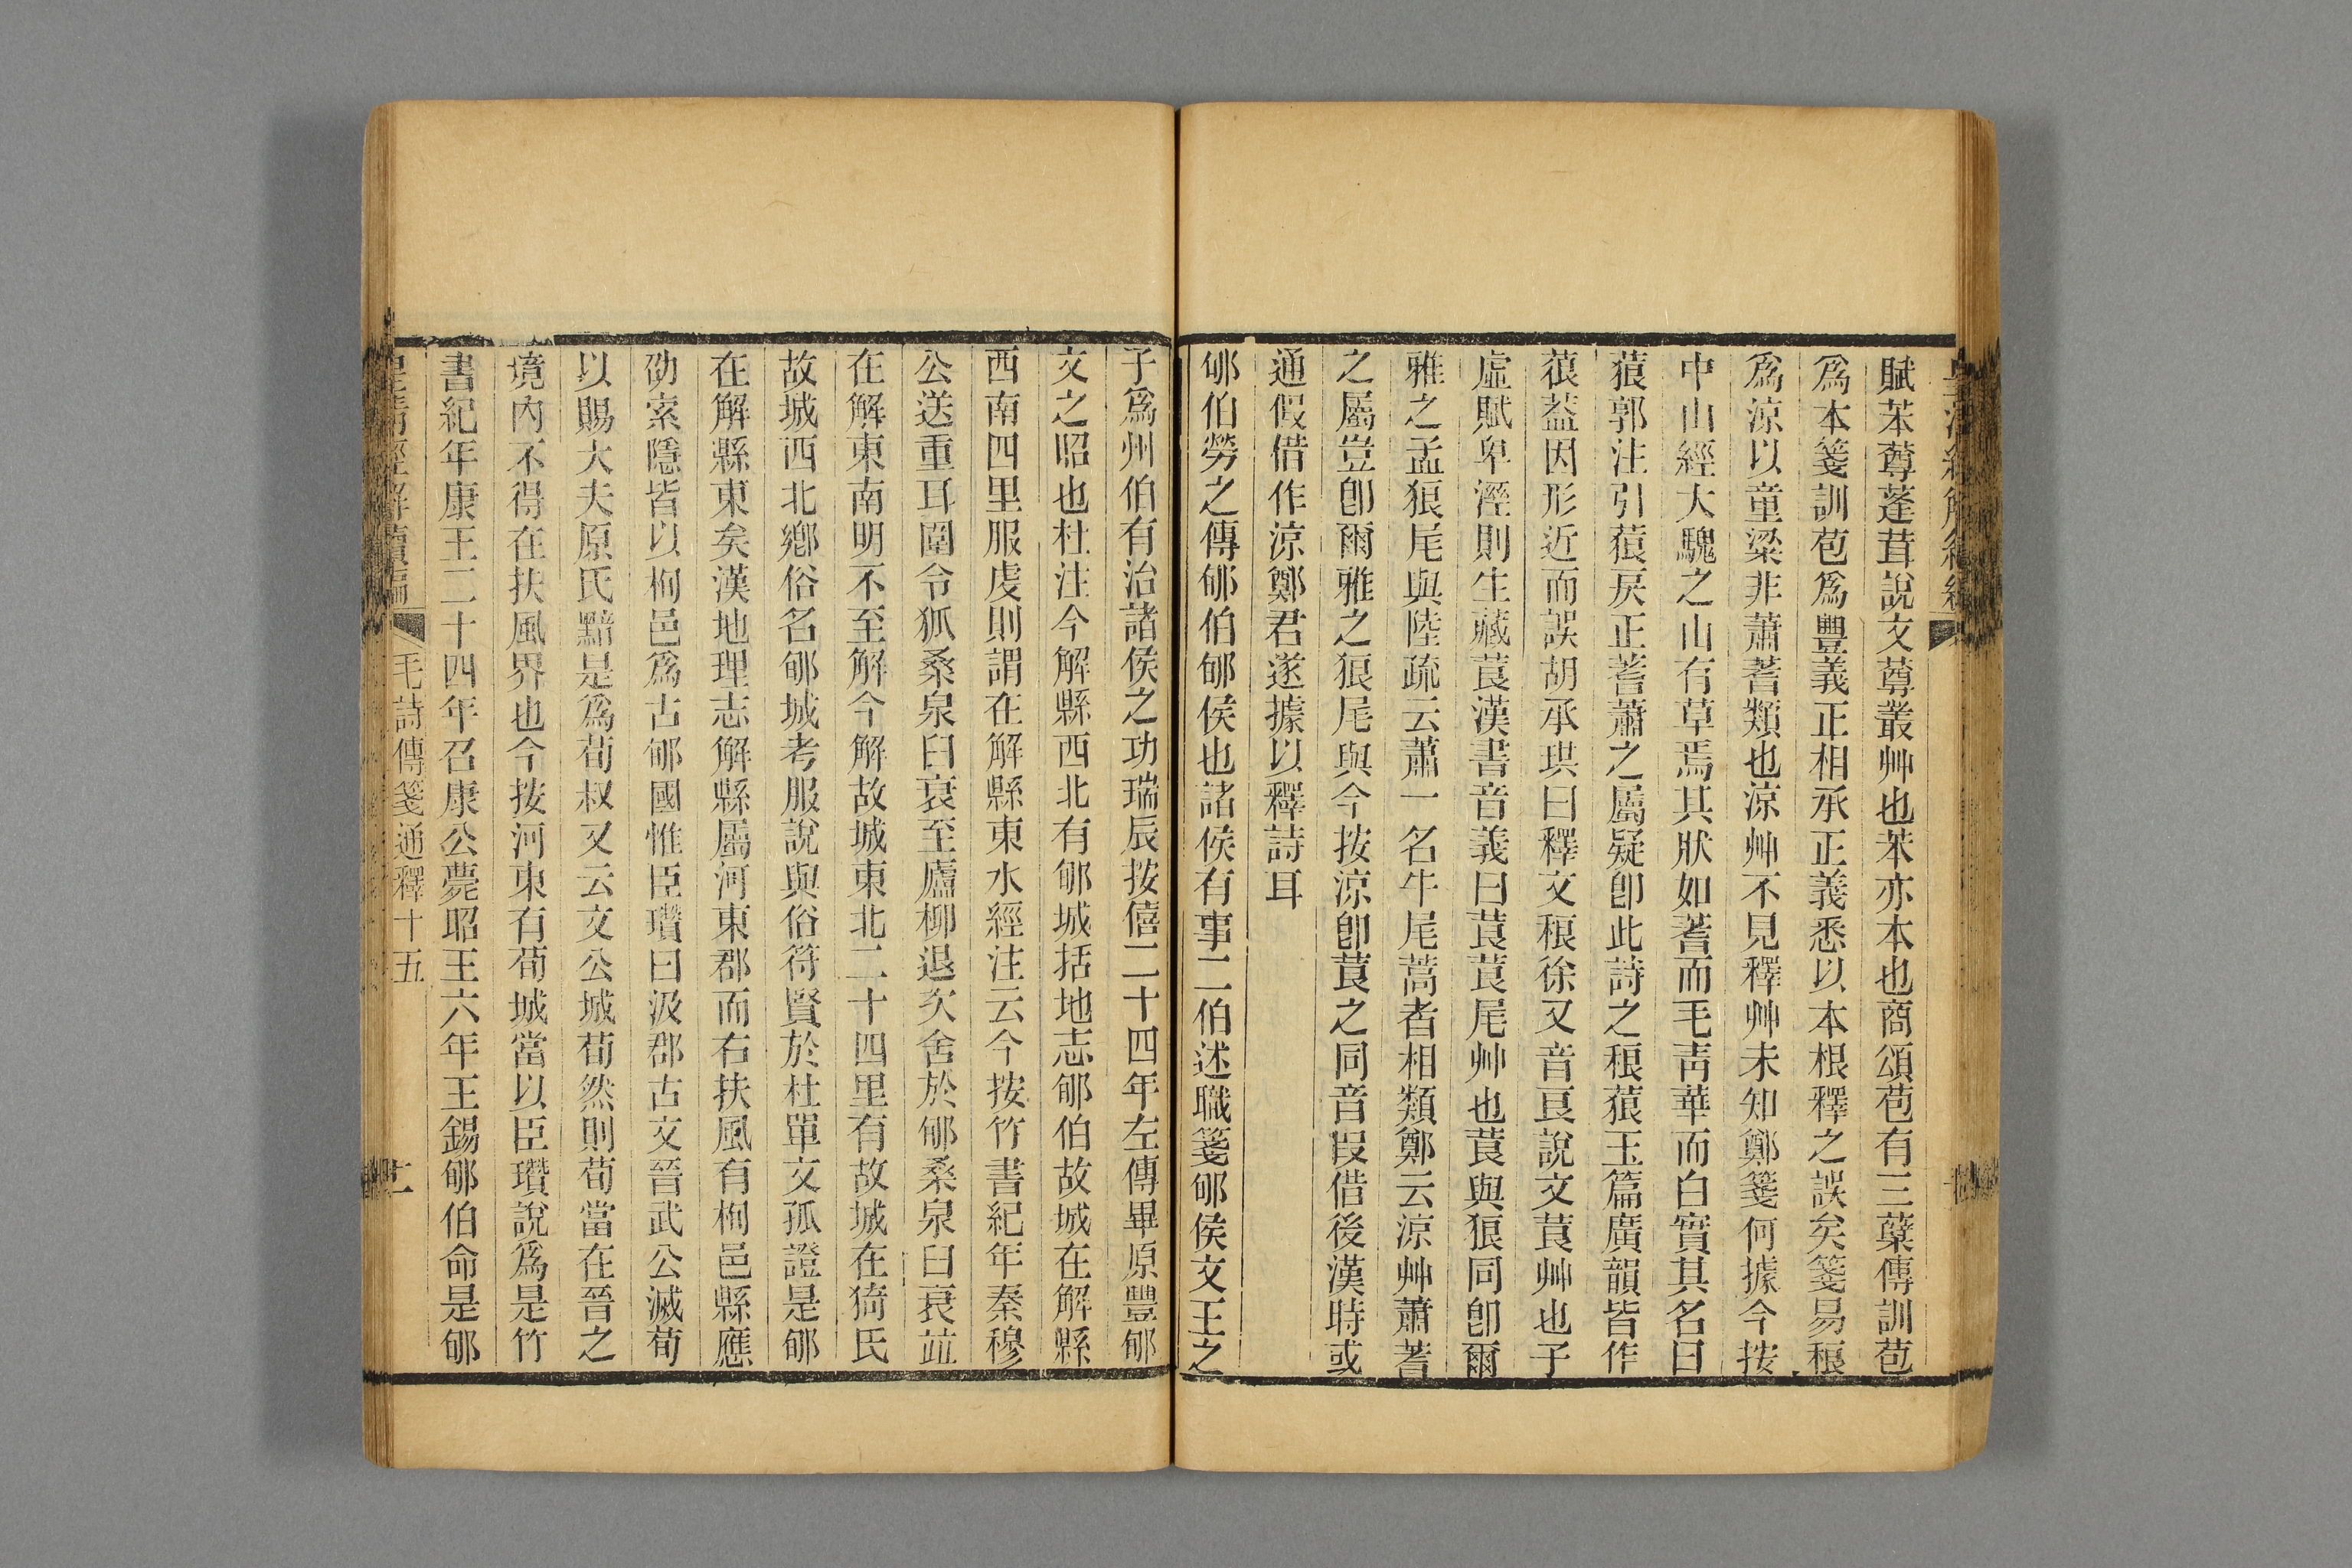 賦苯䔿蓬茸說文䔿叢艸也苯亦本也商頌苞有三蘖傳訓苞
爲本箋訓苞爲豐義正相承正義悉以本根釋之誤矣箋易稂
爲涼以童粱非蕭蓍類也涼艸不見釋艸未知鄭箋何據今按
中山經大騩之山有草焉其狀如蓍而毛青華而白實其名曰
䓤郭注引䓤戾正蓍蕭之屬疑卽此詩之稂䓤玉篇廣韻皆作
蒗葢因形近而誤胡承珙曰釋文稂徐又音艮說文莨艸也子
虛賦卑溼則生藏莨漢書音義曰莨莨尾艸也莨與狼同卽爾
雅之孟狼尾與陸疏云蕭一名牛尾蒿者相類鄭云涼艸蕭蓍
之屬豈卽爾雅之狼尾與今按涼卽莨之同音叚借後漢時或
通假借作涼鄭君遂據以釋詩耳
郇伯勞之傳郇伯郇侯也諸侯有事二伯述職箋郇侯文王之
子爲州伯有治諸侯之功瑞辰按僖二十四年左傳畢原豐郇
文之昭也杜注今解縣西北有郇城括地志郇伯故城在解縣
西南四里服虔則謂在解縣東水經注云今按竹書紀年秦穆
公送重耳圍令狐桑泉臼衰至廬柳退次舍於郇桑泉臼衰竝
在解東南明不至解今解故城東北二十四里有故城在猗氏
故城西北鄉俗名郇城考服說與俗符賢於杜單文孤證是郇
在解縣東矣漢地理志解縣屬河東郡而右扶風有栒邑縣應
劭索隱皆以栒邑爲古郇國惟臣瓚曰汲郡古文晉武公滅荀
以賜大夫原氏黯是爲荀叔又云文公城荀然則荀當在晉之
境內不得在扶風界也今按河東有荀城當以臣瓚說爲是竹
書紀年康王二十四年召康公薨昭王六年王錫郇伯命是郇
皇清經解續編 毛詩傳箋通釋十五